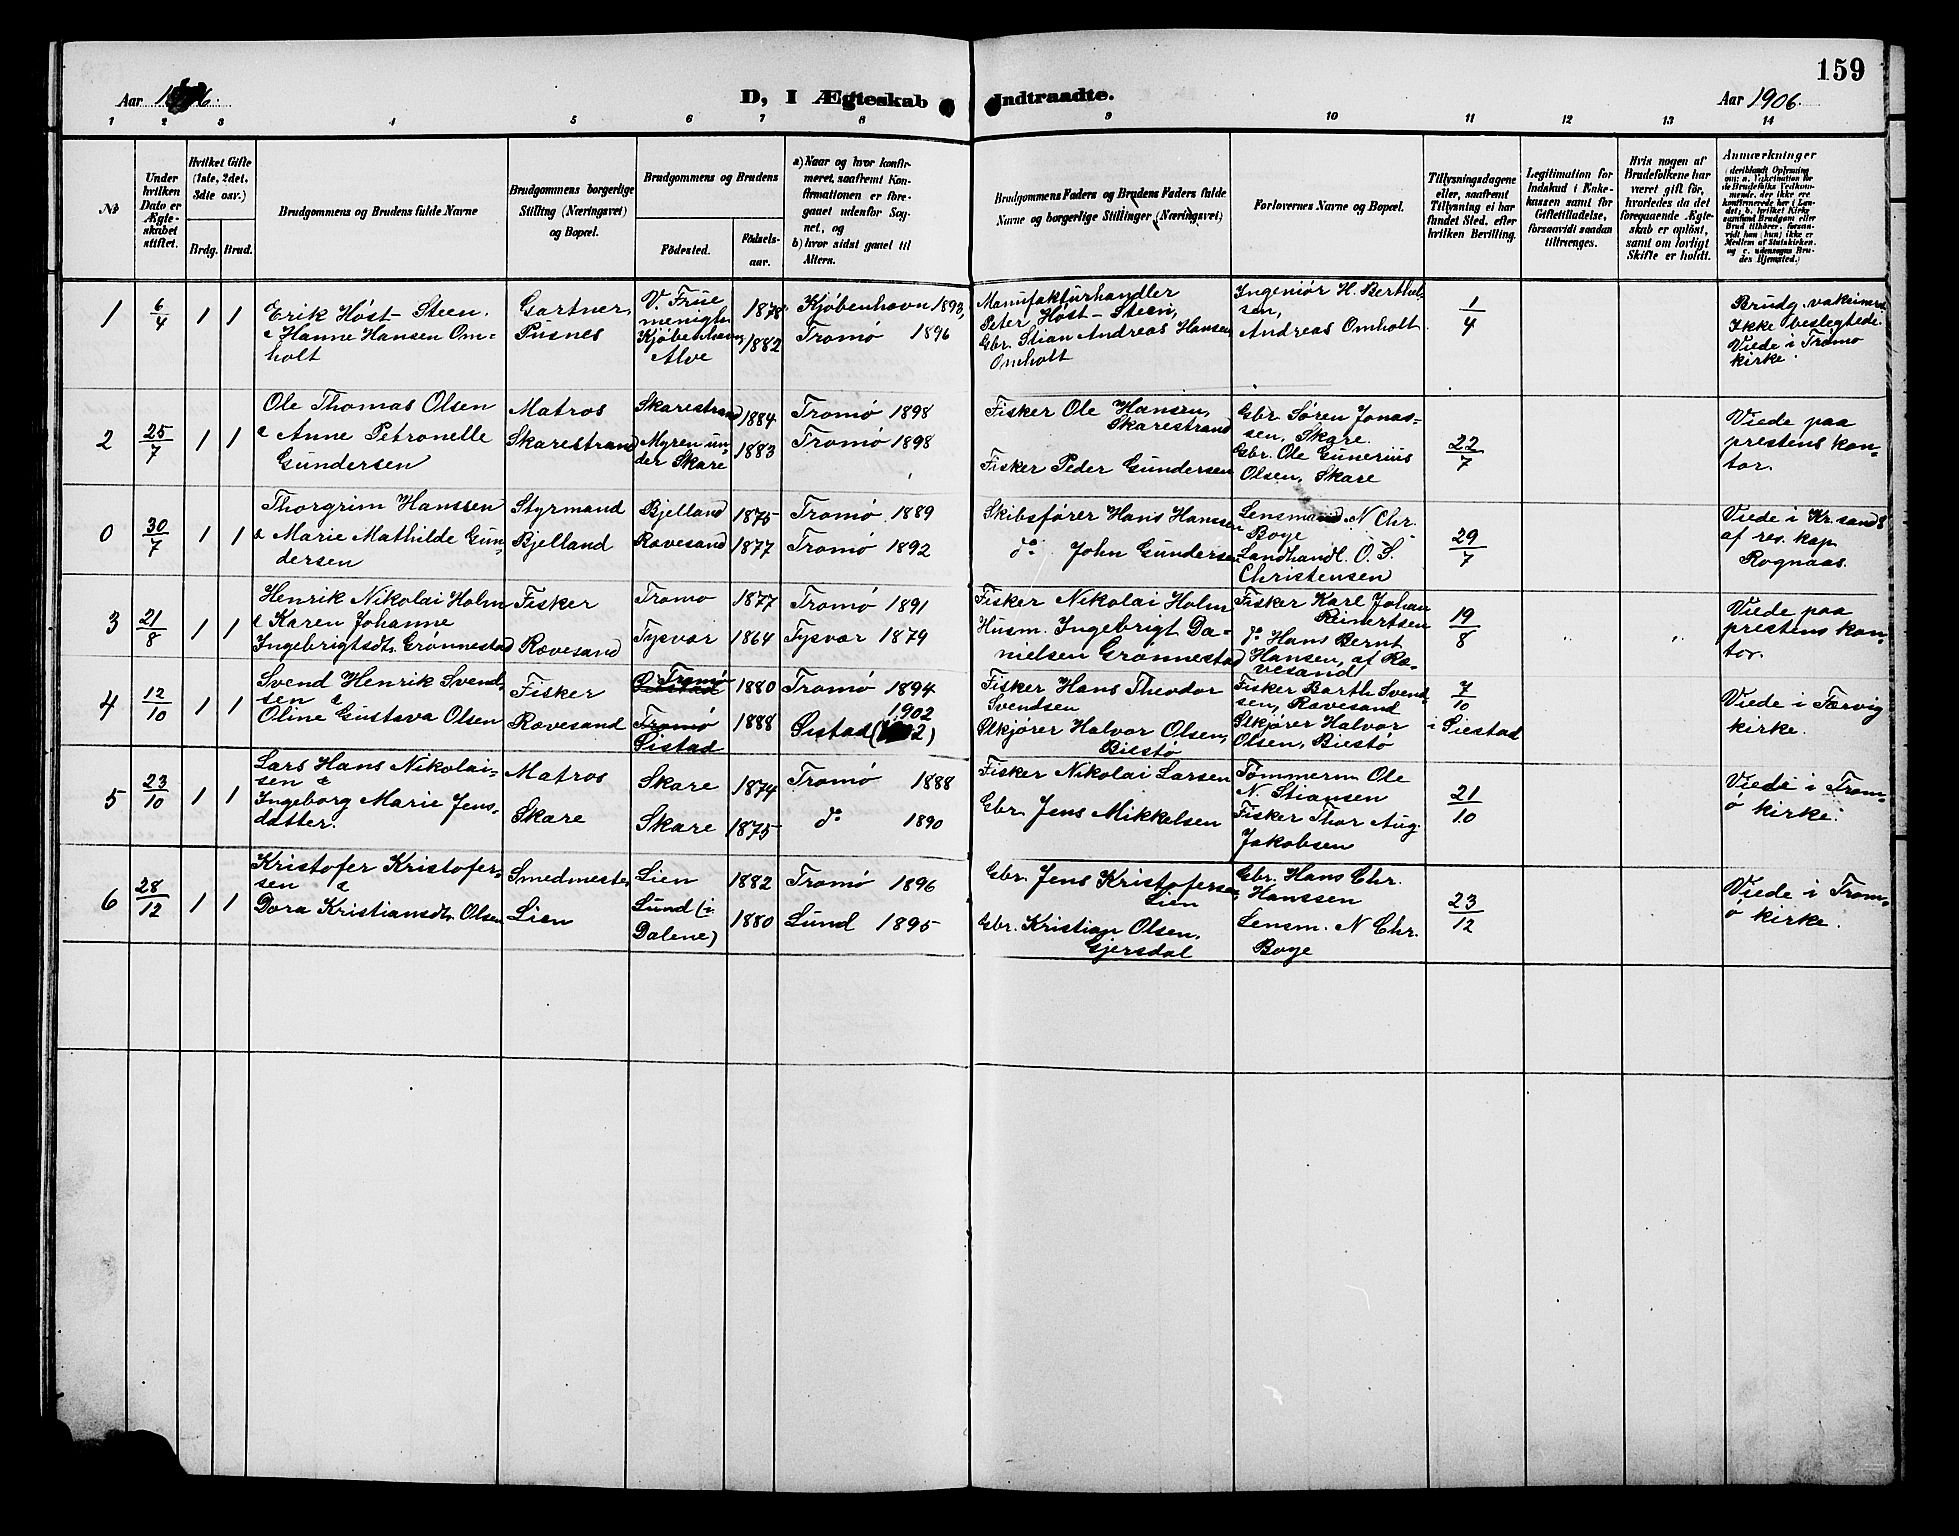 159
Aar 1906.
D, I Ægteskab Indtraadte.
Aar 1906.
1 2 3 4 5 6 7 8 9 10 11 12 13 14
No
Under hvilken Dato er Ægteskabet stiftet.
Hvilket Gifte (1ste, 2det, 3die osv.)
Brdg. Brud.
Brudgommens og Brudens fulde Navne
Brudgommens borgerlige Stilling (Næringsvei) og Bopæl.
Brudgommens og Brudens
Födested.
Födselsaar.
a) Naar og hvor konfirmeret, saafremt Konfirmationen er foregaaet udenfor Sognet, og
b) hvor sidst gaaet til Alters.
Brudgommens Faders og Brudens Faders fulde Navne og borgerlige Stillinger (Næringsvei)
Forlovernes Navne og Bopæl.
Tillysningsdagene eller, saafremt Tillysning ei har fundet Sted, efter hvilken Bevilling.
Legitimation for Indskud i Enkekassen samt for Giftetilladelse, forsaavidt saadan tiltrænges.
Hvis nogen af Brudefolkene har været gift för, hvorledes da det foregaaende Ægteskab er oplöst, samt om lovligt Skifte er holdt.
Anmærkninger
(deriblandt Oplysning om: a. Vakcination for de Brudefolks Vedkommende, der ikke ere konfirmerede her i Landet, b. hvilket Kirkesamfund Brudgom eller Brud tilhörer, forsaavidt han (hun) ikke er Medlem af Statskirken, og c. udensogns Brudes Hjemsted.)
1 6/4 1 1
Erik Høst-Steen.
& Hanne Hansen Omholt
Gartner,
Pusnes
V. Frue menigh. Kjøbenhavn 1878
Alve 1882
Kjøbenhavn 1893,
Tromø 1896
Manufakturhandler
Peter Høst-Steen,
Gbr. Stian Andreas Hansen
Omholt
Ingeniør H. Berthelsen,
Andreas Omholt
1/4
Brudg. vaksineret
Ikke beslegtede.
Viede i Tromø
kirke.
2 25/7 1 1
Ole Thomas Olsen
& Anne Petronelle
Gundersen
Matros
Skarestrand
Skarestrand 1884
Myren under Skare 1883
Tromø 1898
Tromø 1898
Fisker Ole Hansen,
Skarestrand
Fisker Peder Gundersen
Gbr. Søren Jonassen, Skare.
Gbr. Ole Gunerius
Olsen, Skare
22/7
Viede paa
prestens kontor.
0 30/7 1 1
Thorgrim Hanssen
& Marie Mathilde Gundersen
Styrmand
Bjelland
Bjelland 1875
Rævesand 1877
Tromø 1889
Tromø 1892
Skibsfører Hans Hanssen
do John Gundersen
Lensmand N Chr.
Boye
Landhandl. O. S.
Christensen
29/7
Viede i Kr.sand S
af res. kap.
Rognaas.
3 21/8 1 1
Henrik Nikolai Holm
& Karen Johanne
Ingebrigtsdt. Grønnestad
Fisker
Rævesand
Tromø 1877
Tysvær 1864
Tromø 1891
Tysvær 1879
Fisker Nikolai Holm
Husm. Ingebrigt Danielsen Grønnestad
Fisker Karl Johan
Reinertsen
do Hans Bernt
Hansen, af Rævesand
19/8
Viede paa
prestens kontor.
4 12/10 1 1
Svend Henrik Svendsen &
Oline Gustava Olsen
Fisker
Rævesand
Tromø 1880
Tromø
Øistad 1888
Tromø 1894
1902
Øistad
Fisker Hans Theodor
Svendsen
Ølkjører Halvor Olsen,
Biestø
Fisker Barth. Svendsen, Rævesand
Ølkjører Halvor
Olsen, Biestø
7/10
Viede i Færvig
kirke.
5 23/10 1 1
Lars Hans Nikolaisen &
Ingeborg Marie Jensdatter.
Matros
Skare
Skare 1874
Skare 1875
Tromø 1888
do 1890
Fisker Nikolai Larsen
Gbr. Jens Mikkelsen
Tømmerm. Ole
N. Stiansen
Fisker Thor Aug.
Jakobsen
21/10
Viede i Tromø kirke.
6 28/12 1 1
Kristofer Kristofersen &
Dora Kristiansdt. Olsen
Smedmester
Lien
Lien 1882
Lund (i Dalene) 1880
Tromø 1896
Lund 1895
Gbr. Jens Kristofersen
Lien
Gbr. Kristian Olsen,
Gjersdal
Gbr. Hans Chr.
Hanssen
Lensm. N Chr.
Boye
23/12
Viede i Tromø kirke.